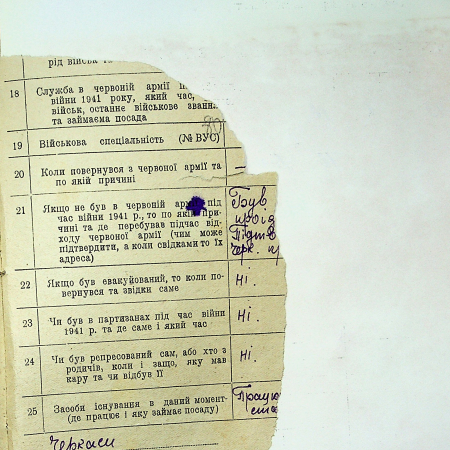 рід війська та
18 Служба в червоній армії п
війни 1941 року, який час,
військ, останнє військове званн
та займаєма посада
19 Військова спеціальність (№ ВУС)
20 Коли повернувся з червоної армії та
по якій причині
21 Якщо не був в червоній армії під
час війни 1941 р., то по якій при-
чині та де перебував підчас від-
ходу червоної армії (чим може
підтвердити, а коли свідками то їх
адреса)
Був
22 Якщо був евакуйований, то коли по-
вернувся та звідки саме
Ні.
23 Чи був в партизанах під час війни
1941 р. та де саме і який час
Ні.
24 Чи був репресований сам, або хто з
родичів, коли і защо, яку мав
кару та чи відбув її
Ні.
25 Засоби існування в даний момент
(де працює і яку займає посаду)
Працю
Черкаси